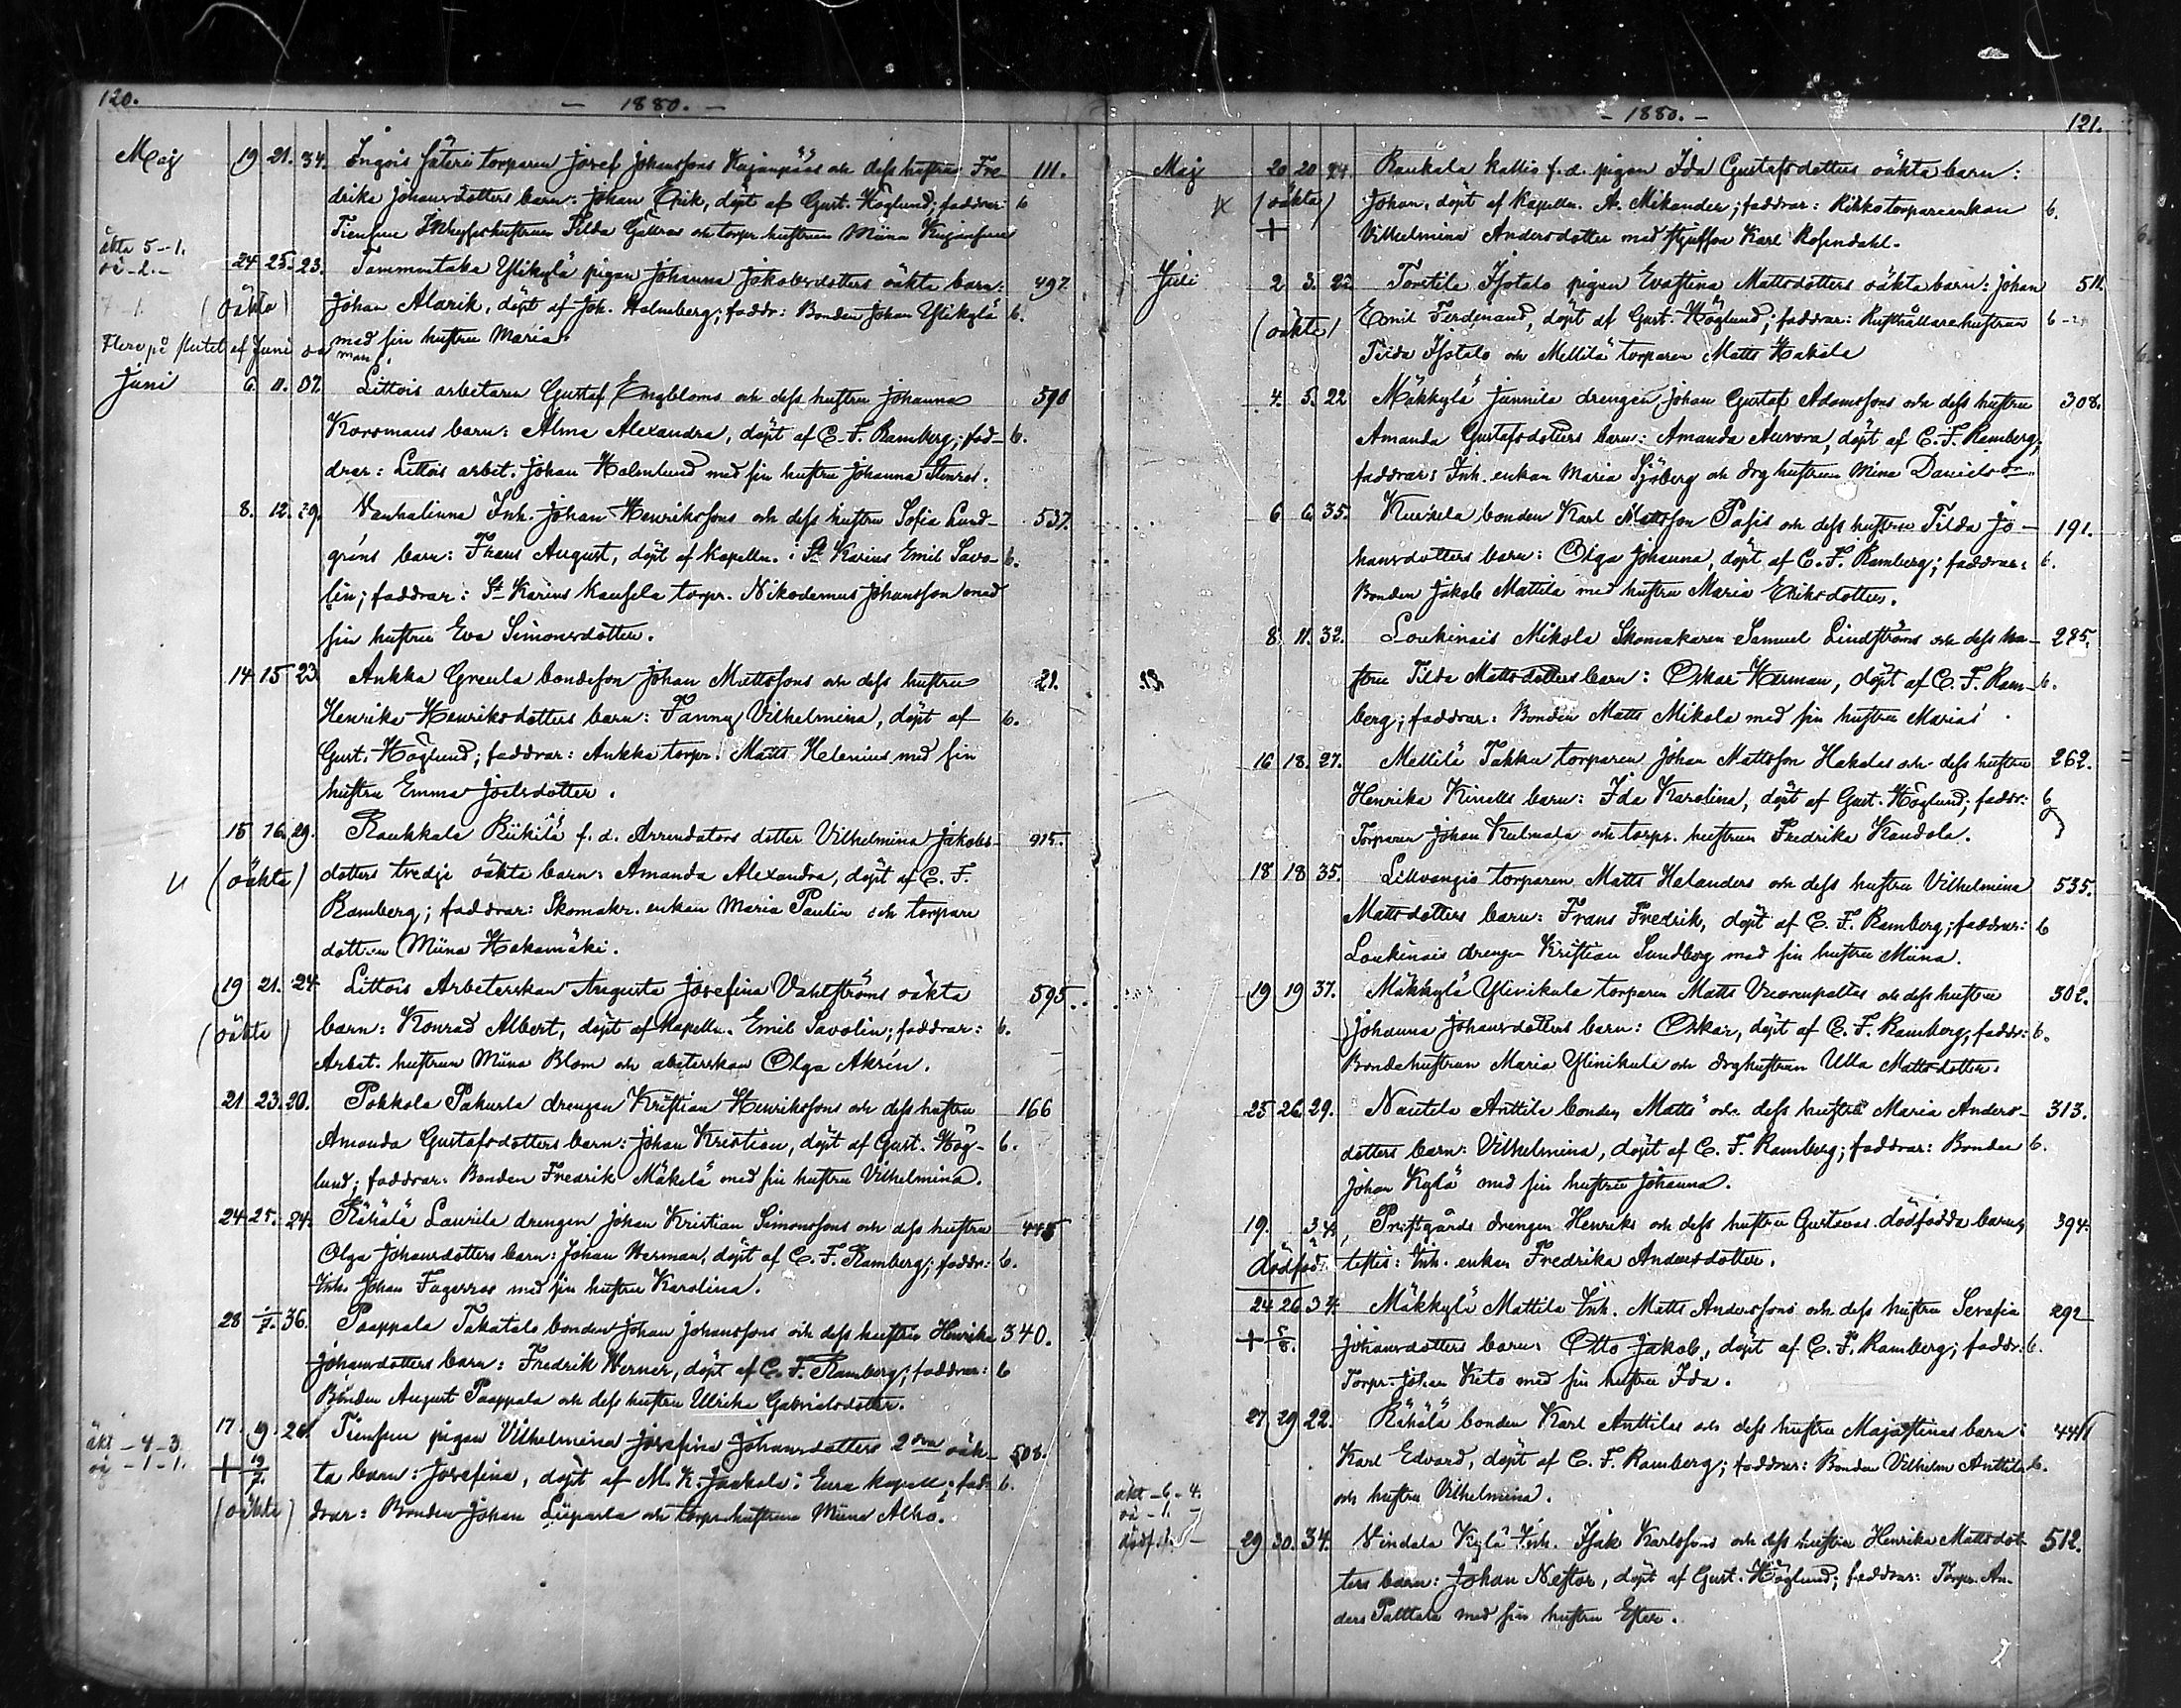 120.
- 1880. -
Maj 19 21. 34. Ingois säteri torparen Josef Johanssons Kujanpääs och dess hustru Fre 111.
drika Johansdotters barn: Johan Erik, döpt af Gust. Höglund; faddrar: 6
Tiensuu Inhyseshustrun Tilda Gällras och torpr. hustrun Miina
äkta 5-1.
oä-2.-
24 25. 23. Tammentaka Ylikylä pigan Johanna Jakobsdotters oäkta barn: 497
7-1. (oäkta) Johan Alarik, döpt af Joh. Holmberg; faddr: Bonden Johan Ylikylä 6.
Flere på slutet af Juni månad. med sin hustru Maria.
Juni 6. 11. 37. Littois arbetaren Gustaf Engbloms och dess hustru Johanna 590
Korsmans barn: Alma Alexandra, döpt af C. F. Ramberg; fad- 6.
drar: Littois arbet. Johan Holmlund med sin hustru Johanna Stenros.
8. 12. 29. Vanhalinna Inh. Johan Henrikssons och dess hustru Sofia Lund- 537.
gréns barn: Frans August, döpt af Kapelln. i St Karins Emil Savo- 6.
lin; faddrar: St Karins Kausela torpr. Nikodemus Johansson med
sin hustru Eva Simonsdotter.
14 15 23. Ankka Greula bondeson Johan Mattssons och dess hustru 21.
Henrika Henriksdotters barn: Fanny Vilhelmina, döpt af 6.
Gust. Höglund; faddrar: Ankka torpr. Matts Helenius med sin
hustru Emma Joelsdotter.
15 16. 29. Raukkala Riikilä f. d. Arrendators dotter Vilhelmina Jakobs- 915.
(oäkta) dotters tredje oäkta barn: Amanda Alexandra, döpt af C. F.
Ramberg; faddrar: Skomakr. enkan Maria Paulin och torpare
dottren Miina Hakamäki.
19 21. 24. Littois Arbeterskan Augusta Josefina Vahlströms oäkta 595.
(oäkta) barn: Konrad Albert, döpt af Kapelln. Emil Savolin; faddrar: 6.
Arbet. hustrun Miina Blom och arbeterskan Olga Akrén.
21 23. 20. Pokkola Pahurla drengen Kristian Henrikssons och dess hustru 166
Amanda Gustafsdotters barn: Johan Kristian, döpt af Gust. Hög- 6.
lund; faddrar: Bonden Fredrik Mäkelä med sin hustru Vilhelmina.
24 25. 24. Rähälä Laurila drengen Johan Kristian Simonssons och dess hustru 445
Olga Johansdotters barn: Johan Herman, döpt af C. F. Ramberg; faddr: 6.
Inh. Johan Fagerros med sin hustru Karolina.
28 1/7. 36. Paappala Takatalo bonden Johan Johanssons och dess hustru Henrika 340.
Johansdotters barn: Fredrik Werner, döpt af C. F. Ramberg; faddrar: 6
Bonden August Paappala och dess hustru Ulrika Gabrielsdotter.
äkt-4-3.
oä-1-1.
17. 19. 26. Tiensuu pigan Vilhelmina Josefina Johansdotters 2dra oäk- 508.
+ 19/7. ta barn: Josefina, döpt af M. K. Jaakola i Eura kapell; fad- 6.
(oäkta) drar: Bonden Johan Liiparla och torpr. hustrun Miina Alho.
- 1880. -
121.
Maj 20 20 24 Raukala Kallio f. d. pigan Ida Gustafsdotters oäkta barn:
(oäkta) Johan, döpt af Kapelln. A. Mikander; faddrar: Rikko torpareenkan 6.
+ Vilhelmina Andersdotter med styfson Karl Rosendahl.
Juli 2 3. 22 Torstila Isotalo pigan Evastina Mattsdotters oäkta barn: Johan 511.
(oäkta) Emil Ferdinand, döpt af Gust. Höglund; faddrar: Rusthållarehustrun 6
Tilda Isotalo och Mellilä torparen Matts Hakala
4. 5. 22 Mäkkylä Junnila drengen Johan Gustaf Adamssons och dess hustru 308.
Amanda Gustafsdotters barn: Amanda Aurora, döpt af C. F. Ramberg;
faddrar: Inh. enkan Maria Sjöberg och drg hustrun Mina Danielsdr.
6 6. 35. Kurala bonden Karl Mattsson Pasis och dess hustru Tilda Jo- 191.
hansdotters barn: Olga Johanna, döpt af C. F. Ramberg; faddrar: 6.
Bonden Jakob Mattila med hustru Maria Eriksdotter.
8. 11. 32. Loukinais Mikola Skomakaren Samuel Lindströms och dess hu- 285.
stru Tilda Mattsdotters barn: Oskar Herman, döpt af C. F. Ram- 6.
berg; faddrar: Bonden Matts Mikola med sin hustru Maria.
16 18. 27. Mellilä Takku torparen Johan Mattsson Hakalas och dess hustru 262.
Henrika Kinells barn: Ida Karolina, döpt af Gust. Höglund; faddr: 6
Torparen Johan Kulmala och torpr. hustrun Fredrika Kandola.
18 18 35. Lillvangio torparen Matts Helanders och dess hustru Vilhelmina 535.
Mattsdotters barn: Frans Fredrik, döpt af C. F. Ramberg; faddrar: 6
Loukinais drengen Kristian Sundberg med sin hustru Miina.
19 19 37. Mäkkylä Ylinikula torparen Matts Vuorenpaltas och dess hustru 302.
Johanna Johansdotters barn: Oskar, döpt af C. F. Ramberg; faddr: 6.
Bondehustrun Maria Ylinikula och drghustrun Ulla Mattsdotter.
25 26. 29. Nautela Anttila bonden Matts och dess hustru Maria Anders- 313.
dotters barn: Vilhelmina, döpt af C. F. Ramberg; faddrar: Bonden 6.
Johan Kylä med sin hustru Johanna.
19. 34. Prestgårds drengen Henriks och dess hustru Gustavas dödfödda barn, 394.
dödföd. testis: Inh. enkan Fredrika Andersdotter.
24 26 34. Mäkkylä Mattila Inh. Matts Anderssons och dess hustru Serafia 292
+ 5/8. Johansdotters barn: Otto Jakob, döpt af C. F. Ramberg; faddr: 6.
Torpr. Johan Keto med sin hustru Ida.
27 29 22. Rähälä bonden Karl Anttilas och dess hustru Majastinas barn: 441
Karl Edvard, döpt af C. F. Ramberg; faddrar: Bonden Vilhelm Anttila 6.
och hustru Vilhelmina.
äkt-6-4.
oä-1.
dödf.
29 30. 34. Vindala Kylä Inh. Isak Karlssons och dess hustru Henrika Mattsdot- 512.
ters barn: Johan Nestor, döpt af Gust. Höglund; faddrar: Torpr. An-
ders Palttala med sin hustru Ester.